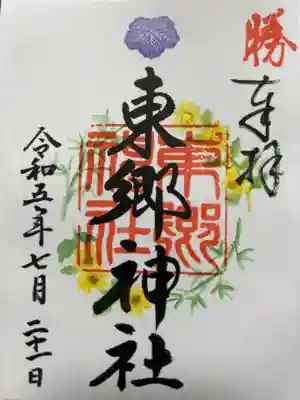 勝
奉拝
東郷神社
東郷
神社
令和五年七月二十一日